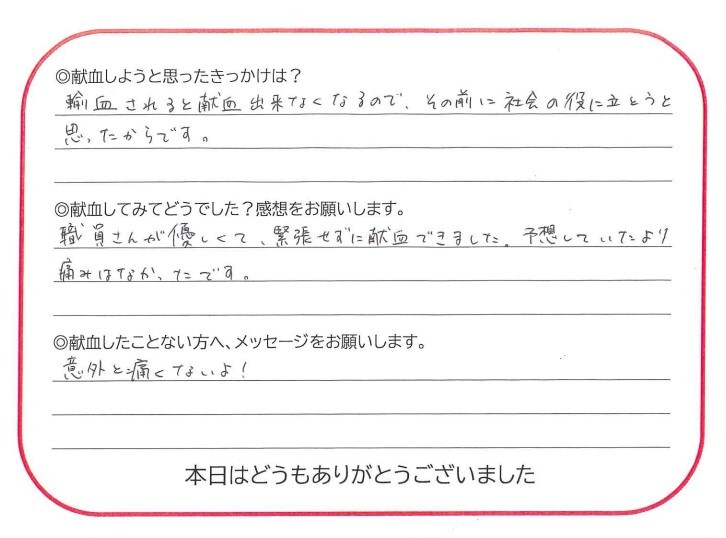 ◎献血しようと思ったきっかけは？
輸血されると献血出来なくなるので、その前に社会の役に立とうと
思ったからです。
◎献血してみてどうでした？感想をお願いします。
職員さんが優しくて、緊張せずに献血できました。予想していたより
痛みはなかったです。
◎献血したことない方へ、メッセージをお願いします。
意外と痛くないよ！
本日はどうもありがとうございました